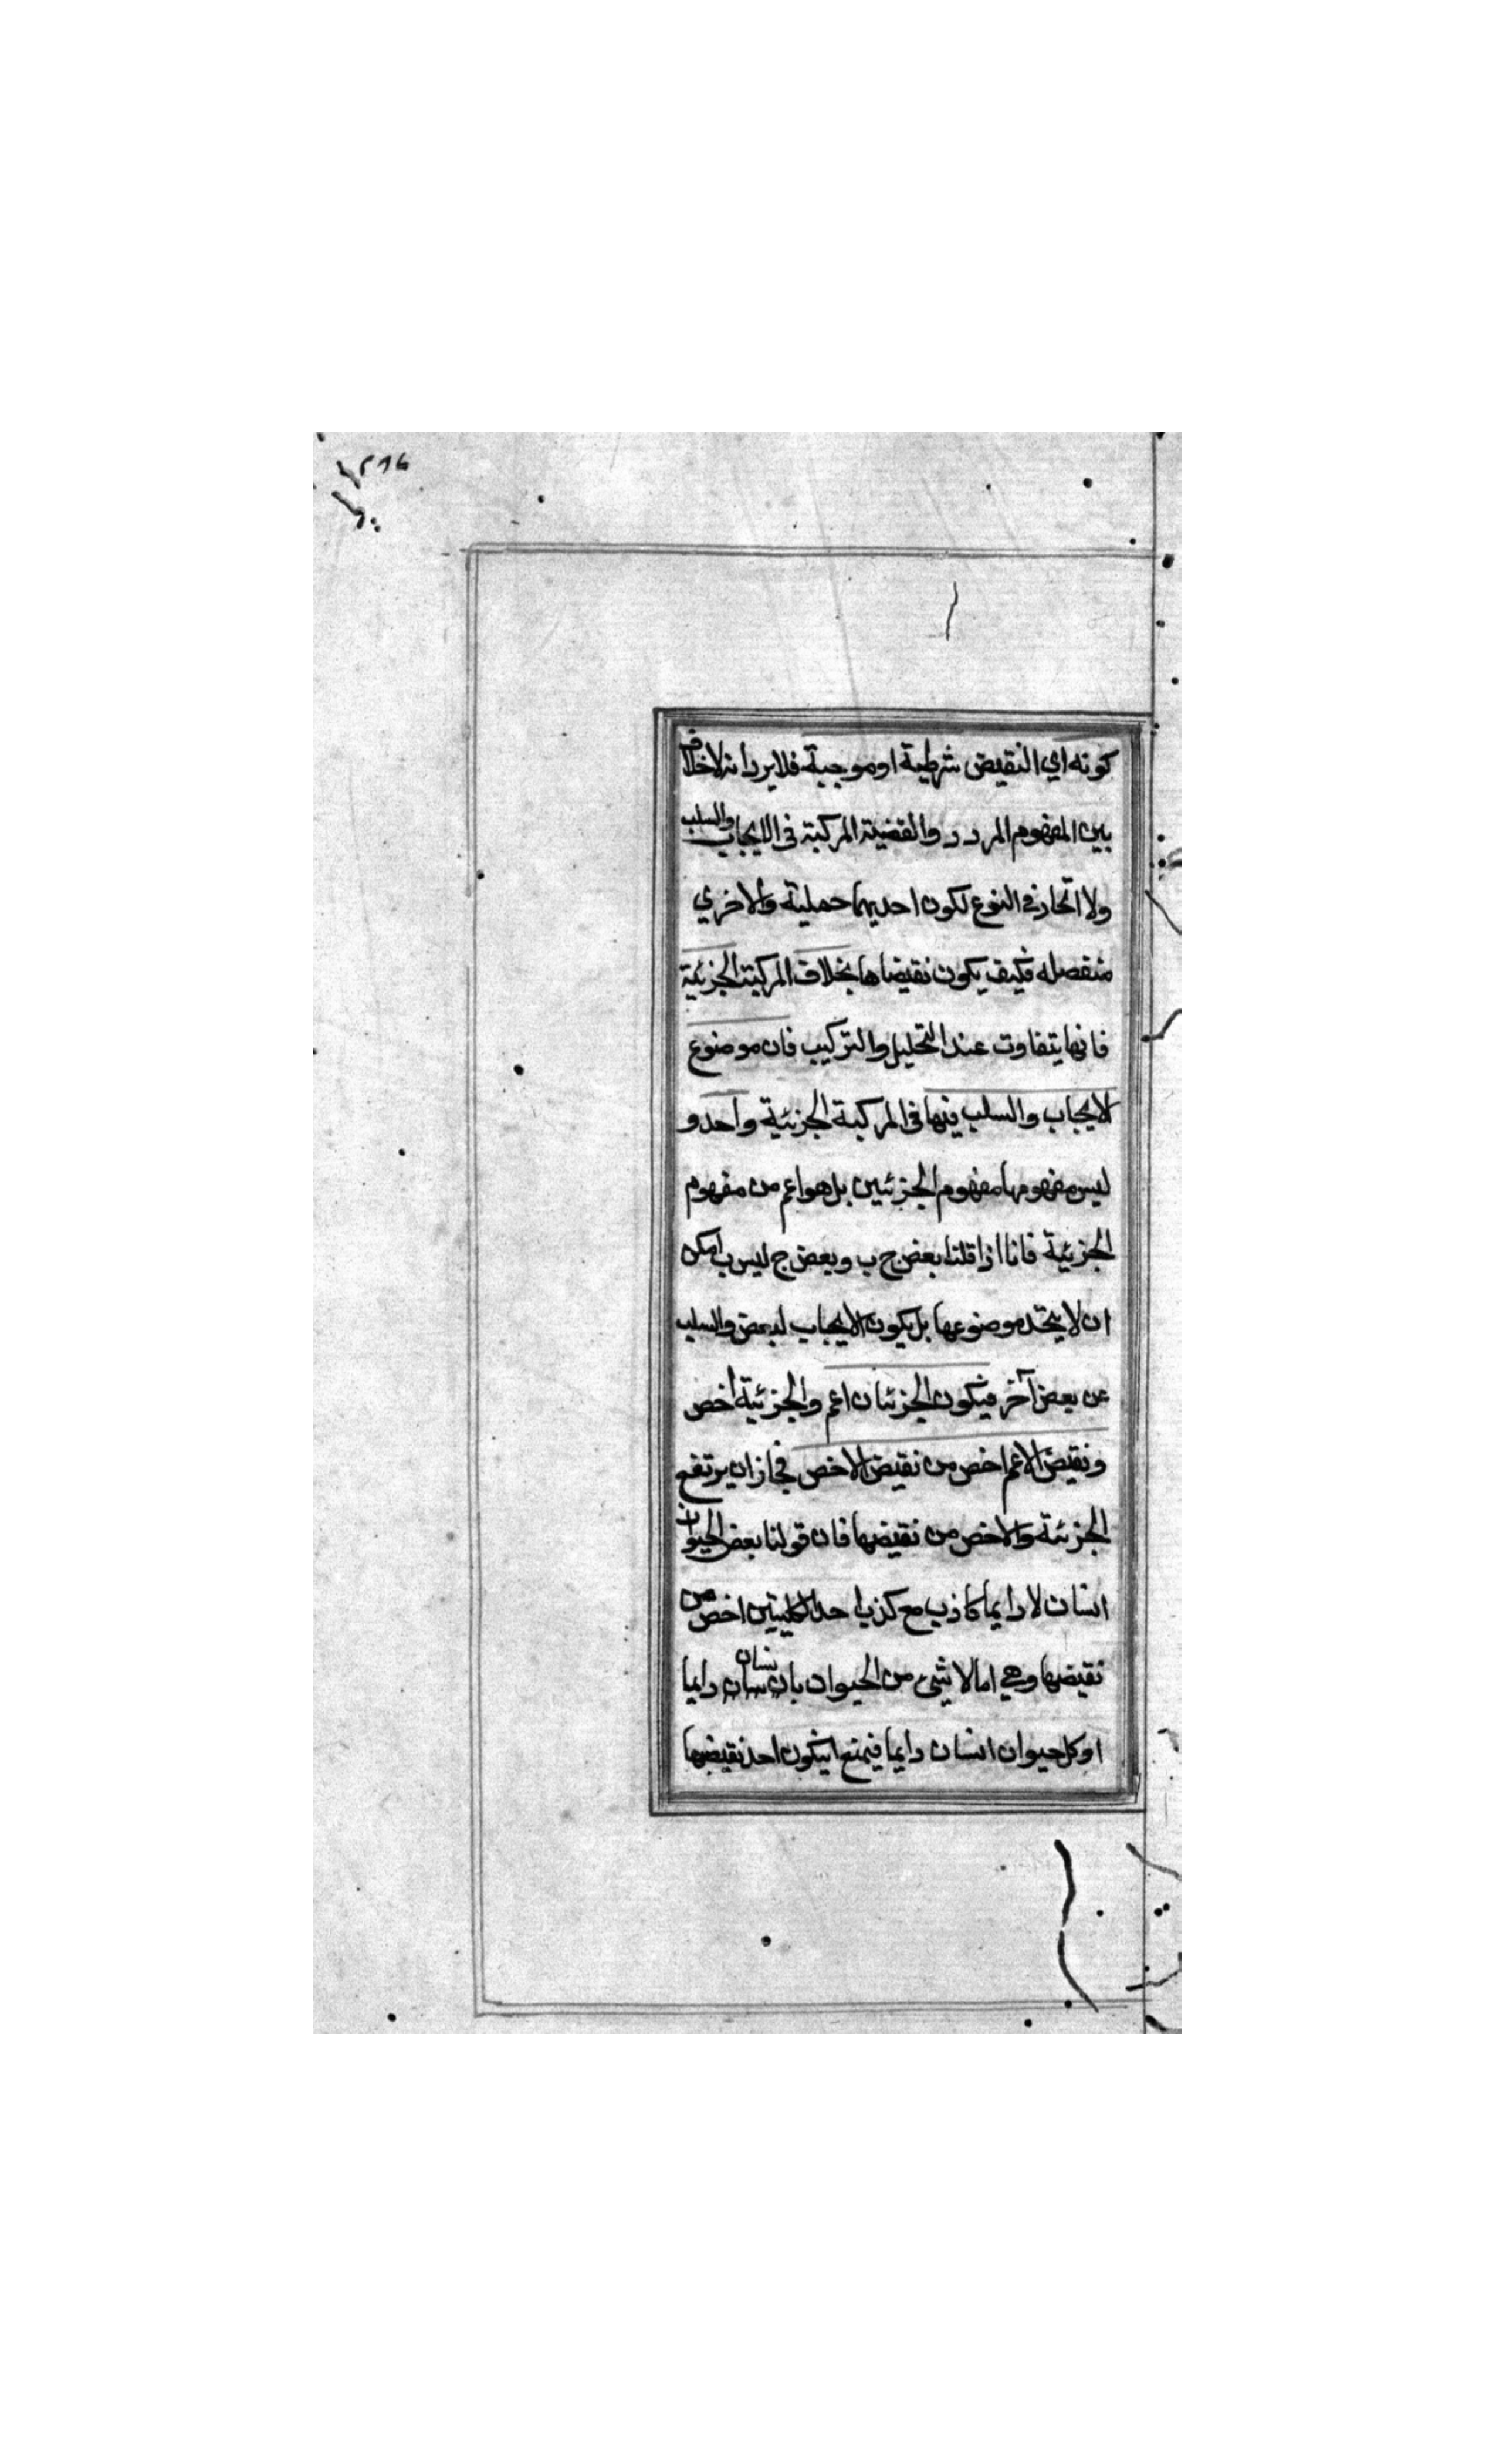 كونه اي النقيض شرطية او موجبة فلا يرد انه لا خلاف
بين المفهوم المردد والقضية المركبة في الايجاب والسلب
ولا اتحاد في النوع لكون احديهما حملية والاخري
منفصله فكيف يكون نقيضا ها بخلاف المركبة الجزئية
فانها يتفاوت عند التحليل والتركيب فان موضوع
لايجاب والسلب فيها في المركبة الجزئية واحد و
ليس مفهومها مفهوم الجزئيين بل هو اعم من مفهوم
الجزئية فانا اذا قلنا بعض ج ب وبعض ج ليس ب امكن
ان لا يتحد موضوعها بل يكون الايجاب لبعض والسلب
عن بعض آخر فيكون الجزئيان اعم والجزئية اخص
ونقيض الاعم اخص من نقيض الاخص فجاز ان يرتفع
الجزئية والاخص من نقيضها فان قولنا بعض الحيوان
انسان لا دايما كاذب مع كذب احد الكليتين اخص من
نقيضها وهي اما لا شئ من الحيوان بان نسان دايما
او كل حيوان انسان دايما فيمتنع ان يكون احد نقيضها